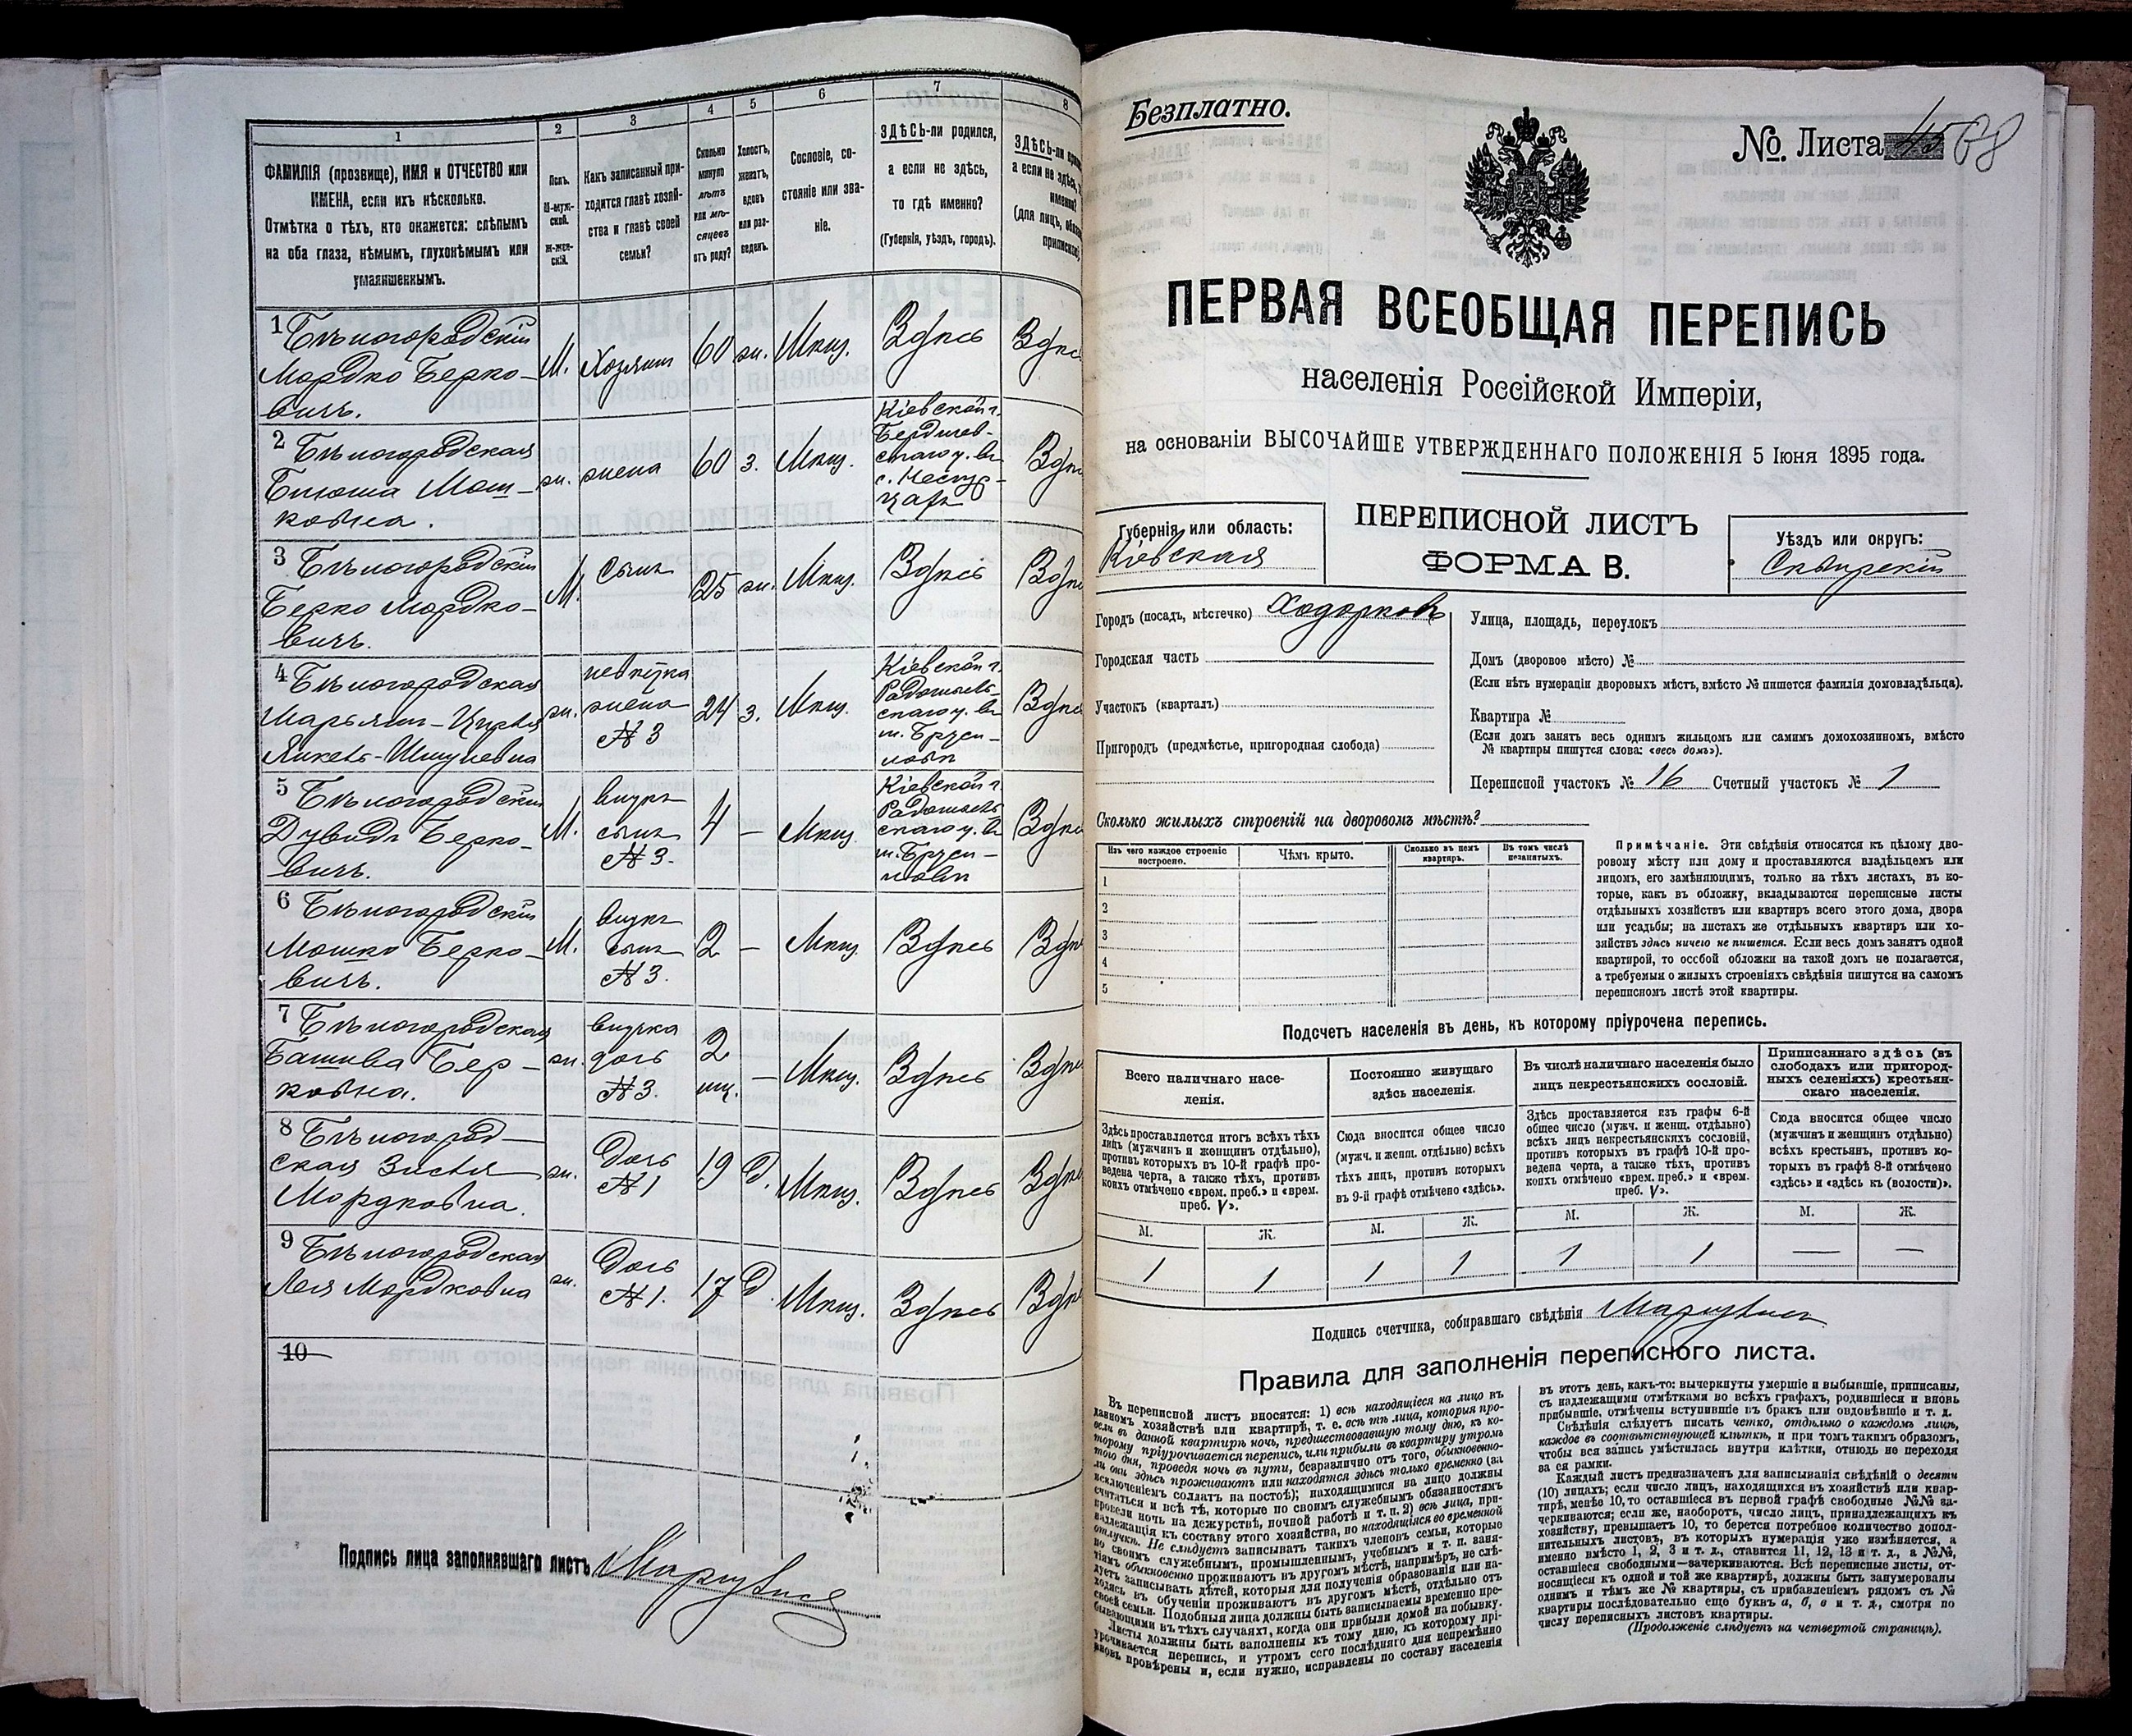 1
2
3
4
5
6
7
8
ФАМИЛІЯ (прозвище), ИМЯ и ОТЧЕСТВО или
ИМЕНА, если ихъ нѣсколько.
Отмѣтка о тѣхъ, кто окажется: слѣпымъ
на оба глаза, нѣмымъ, глухонѣмымъ или
умалишеннымъ.
Полъ.
М-муж-
ской.
ж-жен-
скій.
Какъ записанный при-
ходится главѣ хозяй-
ства и главѣ своей
семьи?
Сколько
минуло
лѣтъ
или мѣ-
сяцевъ
отъ роду?
Холостъ,
женатъ,
вдовъ
или раз-
веденъ.
Сословіе, со-
стояніе или зва-
ніе.
ЗДѢСЬ-ли родился,
а если не здѣсь,
то гдѣ именно?
(Губернія, уѣздъ, городъ).
ЗДѢСЬ-ли
а если не здѣсь,
именно?
(для лицъ,
1 Бѣлогородскій
Мордко Берко-
вичъ.
М. Хозяин 60 ж. Мѣщ. Здѣсь
2 Бѣлогородская
Мош-
ковна.
ж. жена 60 з. Мѣщ.
Кіевской г.
Бердичев-
скаго у. въ
с.
3 Бѣлогородскій
Берко Мордко-
вичъ.
М. Сынъ 25 ж. Мѣщ. Здѣсь
4 Бѣлогородская
Марьям-Цирля
Янкель-Шмулевна
ж. невѣстка
жена
№ 3
24 з. Мѣщ.
Кіевской г.
Радомысль-
скаго у. въ
м. Бруси-
ловѣ
5 Бѣлогородскій
Дувидъ Берко-
вичъ.
М. внукъ
сынъ
№ 3.
4 — Мѣщ.
Кіевской г.
Радомысль
скаго у. въ
м. Бруси-
ловѣ
6 Бѣлогородскій
Мошко Берко-
вичъ.
М. внукъ
сынъ
№ 3.
2 — Мѣщ. Здѣсь
7 Бѣлогородская
Башива Бер-
ковна.
ж. внучка
дочь
№ 3.
2
мц. — Мѣщ. Здѣсь
8 Бѣлогород-
ская Зисля
Мордковна.
ж. Дочь
№ 1
19 Д. Мѣщ. Здѣсь
9 Бѣлогородская
Лея Мордковна
ж. Дочь
№ 1.
17 Д. Мѣщ. Здѣсь
10
Подпись лица заполнявшаго листъ
Безплатно.
№. Листа 45 68
ПЕРВАЯ ВСЕОБЩАЯ ПЕРЕПИСЬ
населенія Россійской Имперіи,
на основаніи ВЫСОЧАЙШЕ УТВЕРЖДЕННАГО ПОЛОЖЕНІЯ 5 Іюня 1895 года.
Губернія или область:
Кіевская
ПЕРЕПИСНОЙ ЛИСТЪ
ФОРМА В.
Уѣздъ или округъ:
Сквирскій
Городъ (посадъ, мѣстечко) Ходорковъ
Городская часть
Участокъ (кварталъ)
Пригородъ (предмѣстье, пригородная слобода)
Улица, площадь, переулокъ
Домъ (дворовое мѣсто) №
(Если нѣтъ нумераціи дворовыхъ мѣстъ, вмѣсто № пишется фамилія домовладѣльца).
Квартира №
(Если домъ занятъ весь однимъ жильцомъ или самимъ домохозяиномъ, вмѣсто
№ квартиры пишутся слова: «весь домъ»).
Переписной участокъ № 16 Счетный участокъ № 1
Сколько жилыхъ строеній на дворовомъ мѣстѣ?
Изъ чего каждое строеніе
построено.
Чѣмъ крыто.
Сколько въ немъ
квартиръ.
Въ томъ числѣ
незанятыхъ.
1
2
3
4
5
Примѣчаніе. Эти свѣдѣнія относятся къ цѣлому дво-
ровому мѣсту или дому и проставляются владѣльцемъ или
лицомъ, его замѣняющимъ, только на тѣхъ листахъ, въ ко-
торые, какъ въ обложку, вкладываются переписные листы
отдѣльныхъ хозяйствъ или квартиръ всего этого дома, двора
или усадьбы; на листахъ же отдѣльныхъ квартиръ или хо-
зяйствъ здѣсь ничего не пишется. Если весь домъ занятъ одной
квартирой, то особой обложки на такой домъ не полагается,
а требуемыя о жилыхъ строеніяхъ свѣдѣнія пишутся на самомъ
переписномъ листѣ этой квартиры.
Подсчетъ населенія въ день, къ которому пріурочена перепись.
Всего наличнаго насе-
ленія.
Здѣсь проставляется итогъ всѣхъ тѣхъ
лицъ (мужчинъ и женщинъ отдѣльно),
противъ которыхъ въ 10-й графѣ про-
ведена черта, а также тѣхъ, противъ
коихъ отмѣчено «врем. преб.» и «врем.
преб. V».
Постоянно живущаго
здѣсь населенія.
Сюда вносится общее число
(мужч. и женщ. отдѣльно) всѣхъ
тѣхъ лицъ, противъ которыхъ
въ 9-й графѣ отмѣчено «здѣсь».
Въ числѣ наличнаго населенія было
лицъ некрестьянскихъ сословій.
Здѣсь проставляется изъ графы 6-й
общее число (мужч. и женщ. отдѣльно)
всѣхъ лицъ некрестьянскихъ сословій,
противъ которыхъ въ графѣ 10-й про-
ведена черта, а также тѣхъ, противъ
коихъ отмѣчено «врем. преб.» и «врем.
преб. V».
Приписаннаго здѣсь (въ
слободахъ или пригород-
ныхъ селеніяхъ) крестьян-
скаго населенія.
Сюда вносится общее число
(мужчинъ и женщинъ отдѣльно)
всѣхъ крестьянъ, противъ ко-
торыхъ въ графѣ 8-й отмѣчено
«здѣсь» и «здѣсь къ (волости)».
М. Ж. М. Ж. М. Ж. М. Ж.
1 1 1 1 1 1 — —
Подпись счетчика, собиравшаго свѣдѣнія
Правила для заполненія переписного листа.
Въ переписной листъ вносятся: 1) всѣ находящіеся на лицо въ
данномъ хозяйствѣ или квартирѣ, т. е. всѣ тѣ лица, которыя про-
вели въ данной квартирѣ ночь, предшествовавшую тому дню, къ ко-
торому пріурочивается перепись, или прибыли въ квартиру утромъ
того дня, проведя ночь въ пути, безразлично отъ того, обыкновенно-
ли они здѣсь проживаютъ или находятся здѣсь только временно (за
исключеніемъ солдатъ на постоѣ); находящимися на лицо должны
считаться и всѣ тѣ, которые по своимъ служебнымъ обязанностямъ
провели ночь на дежурствѣ, ночной работѣ и т. п. 2) всѣ лица, при-
надлежащія къ составу этого хозяйства, но находящіяся во временной
отлучкѣ. Не слѣдуетъ записывать такихъ членовъ семьи, которые
по своимъ служебнымъ, промышленнымъ, учебнымъ и т. п. заня-
тіямъ обыкновенно проживаютъ въ другомъ мѣстѣ, напримѣръ, не слѣ-
дуетъ записывать дѣтей, которыя для полученія образованія или на-
ходясь въ обученіи проживаютъ въ другомъ мѣстѣ, отдѣльно отъ
своей семьи. Подобныя лица должны быть записываемы временно пре-
бывающими въ тѣхъ случаяхъ, когда они прибыли домой на побывку.
Листы должны быть заполнены къ тому дню, къ которому прі-
урочивается перепись, и утромъ сего послѣдняго дня непремѣнно
вновь провѣрены и, если нужно, исправлены по составу населенія
въ этотъ день, какъ-то: вычеркнуты умершіе и выбывшіе, приписаны,
съ надлежащими отмѣтками во всѣхъ графахъ, родившіеся и вновь
прибывшіе, отмѣчены вступившіе въ бракъ или овдовѣвшіе и т. д.
Свѣдѣнія слѣдуетъ писать четко, отдѣльно о каждомъ лицѣ,
каждое въ соотвѣтствующей клѣткѣ, и при томъ такимъ образомъ,
чтобы вся запись умѣстилась внутри клѣтки, отнюдь не переходя
за ея рамки.
Каждый листъ предназначенъ для записыванія свѣдѣній о десяти
(10) лицахъ; если число лицъ, находящихся въ хозяйствѣ или квар-
тирѣ, менѣе 10, то оставшіеся въ первой графѣ свободные №№ за-
черкиваются; если же, наоборотъ, число лицъ, принадлежащихъ къ
хозяйству, превышаетъ 10, то берется потребное количество допол-
нительныхъ листовъ, въ которыхъ нумерація уже измѣняется, а
именно вмѣсто 1, 2, 3 и т. д., ставится 11, 12, 13 и т. д., а №№,
оставшіеся свободными—зачеркиваются. Всѣ переписные листы, от-
носящіеся къ одной и той же квартирѣ, должны быть занумерованы
однимъ и тѣмъ же № квартиры, съ прибавленіемъ рядомъ съ №
квартиры послѣдовательно еще буквъ а, б, в и т. д., смотря по
числу переписныхъ листовъ квартиры.
(Продолженіе слѣдуетъ на четвертой страницѣ).